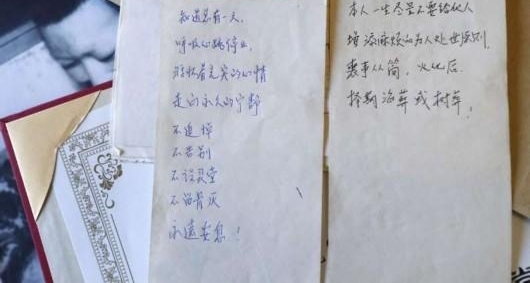 知道总有一天,
呼吸心跳停止,
将怀着充实的心情
走向永久的宁静
不追悼
不告别
不设灵堂
不留骨灰
永远安息!
本人一生尽量不要给他人
增添麻烦的为人处世原则,
丧事从简,火化后
择期海葬或树葬。